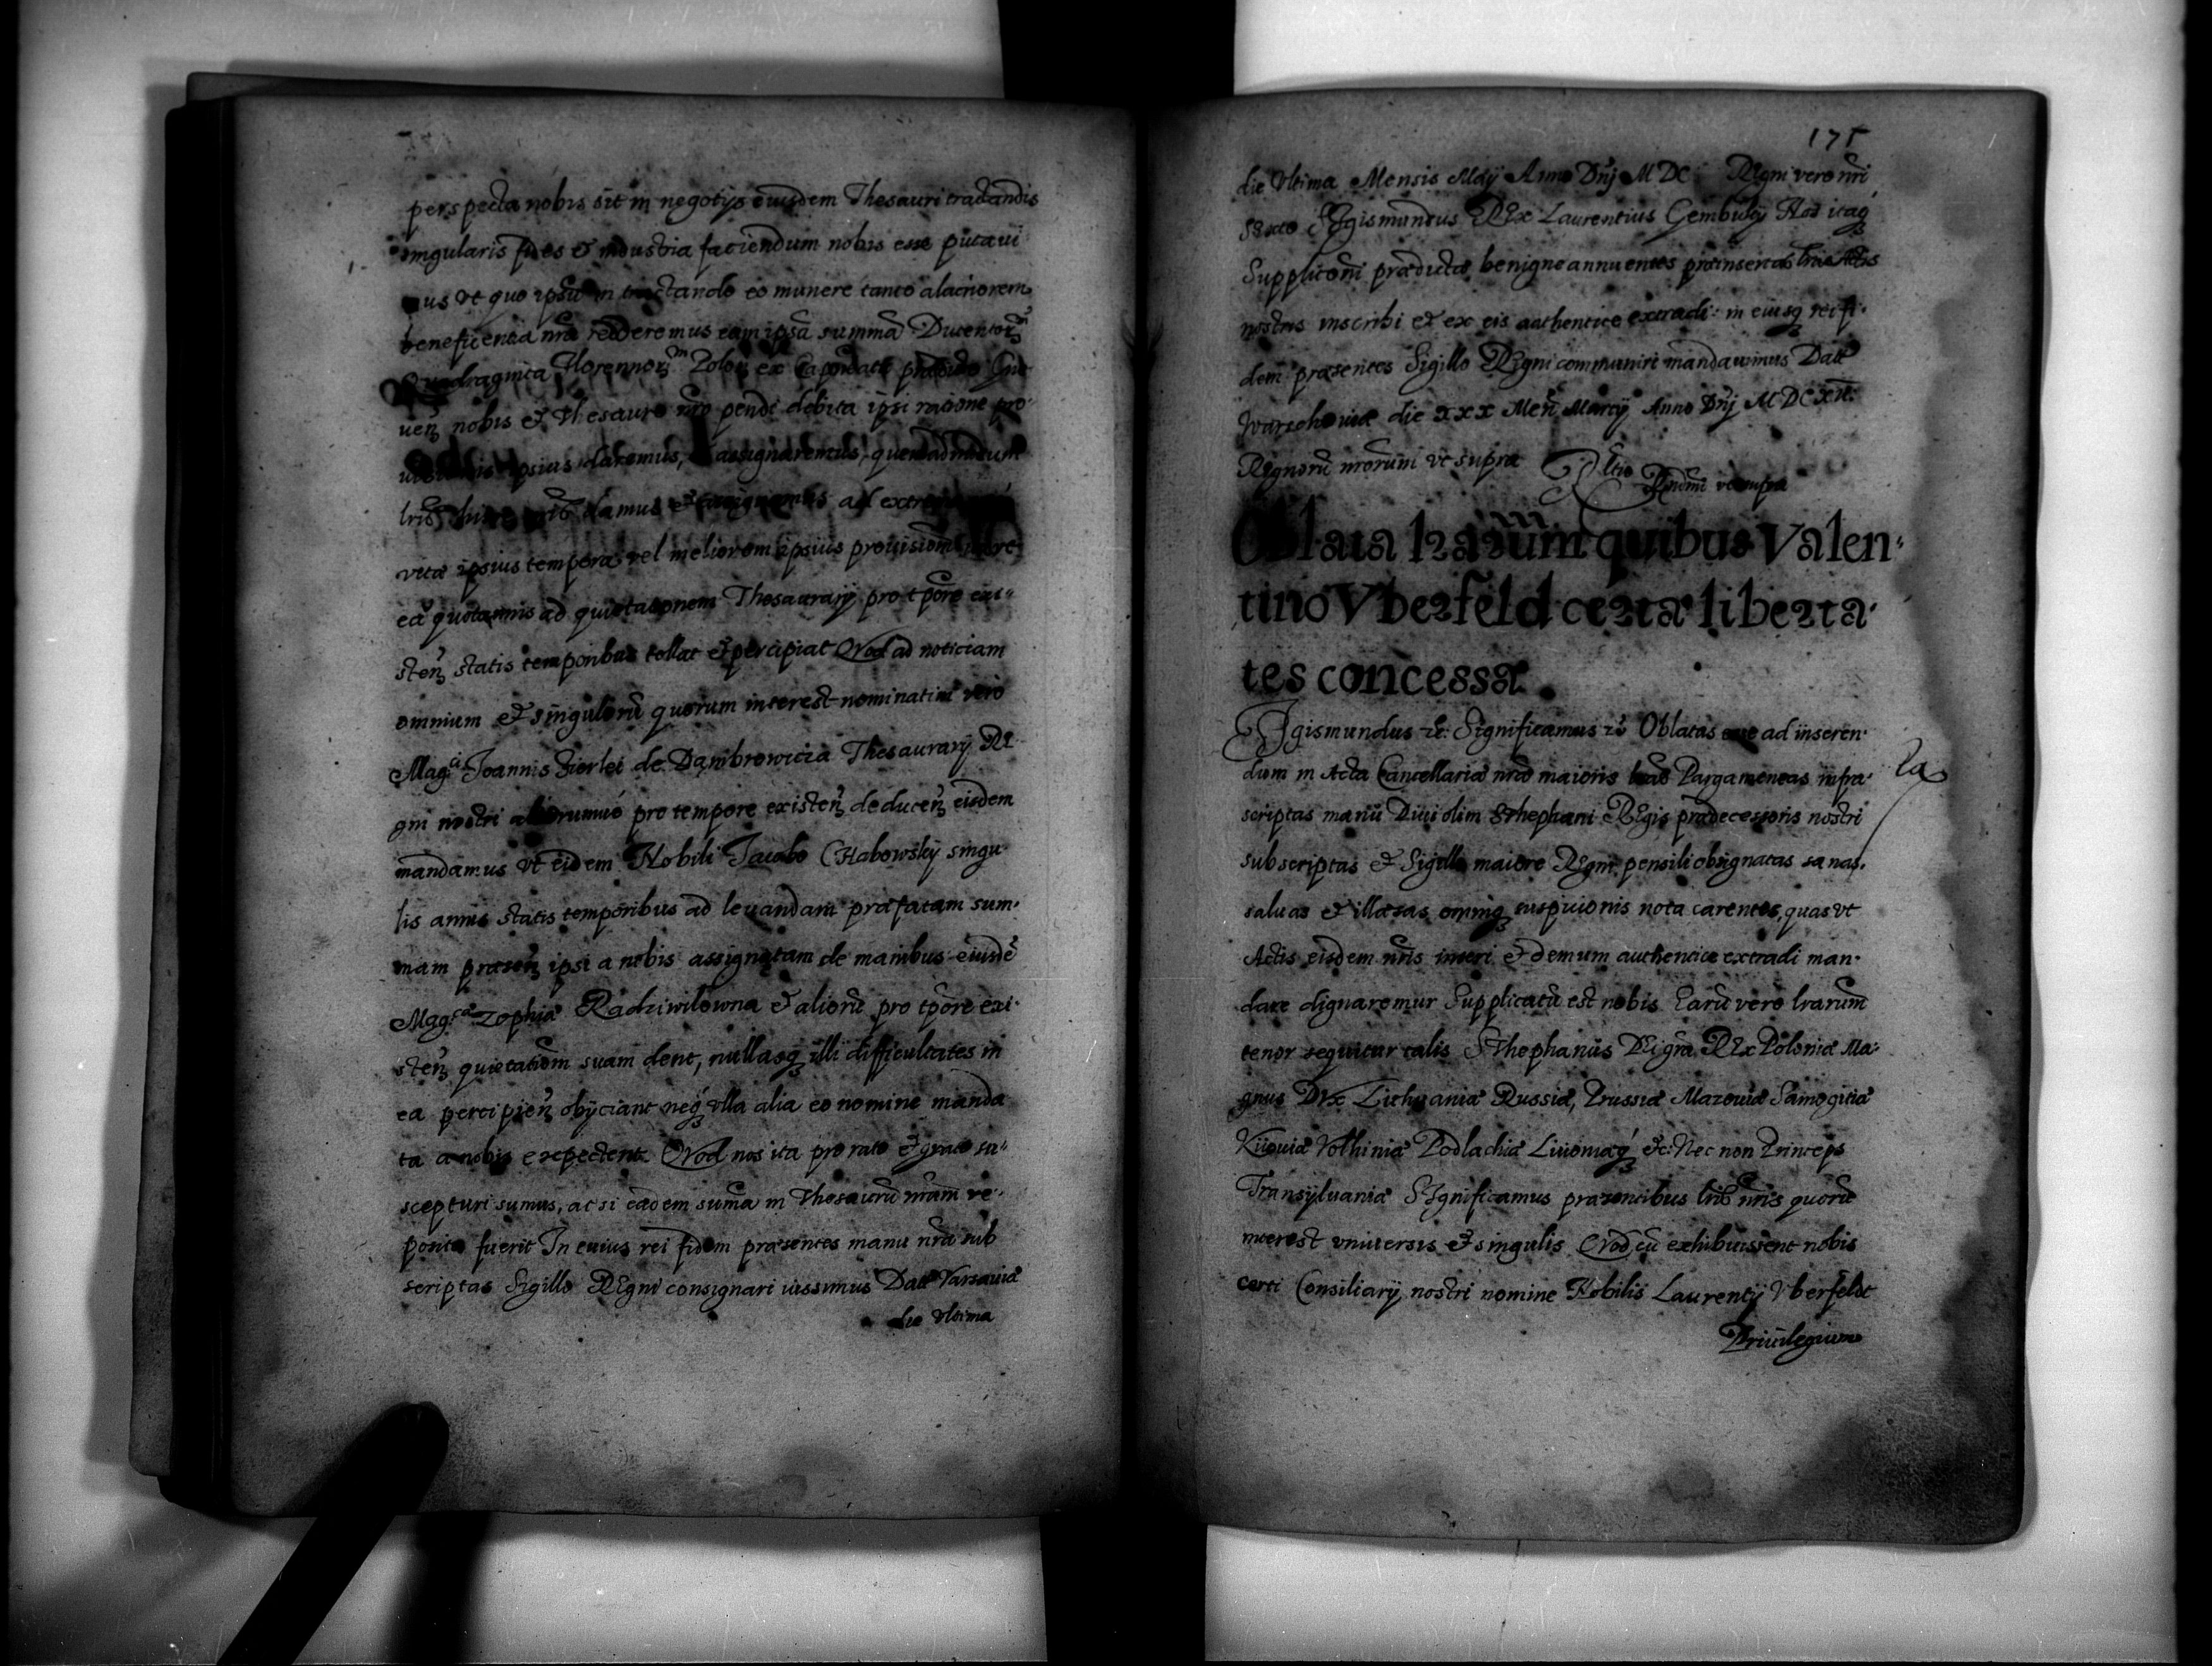 perspecta nobis sit in negotÿs eiusdem Thesauri tractandis
singularis fides et industria faciendum nobis esse putaui
mus vt quo ipsū in tractando eo munere tanto alacriorem
beneficentia nrā redderemus eam ipsā summā Ducentorm
Quadraginta Florenorm Polon ex
uen nobis et Thesauro nrō pendi debita ipsi ratione pro-
ipsius daremus, assignaremus, quemadmodum
lris damus et assignamus ad extrema
vitæ ipsius tempora vel meliorem ipsius prouisionē
eā quotannis ad quietationem Thesaurarÿ pro tpore exi-
sten statis temporibus tollat et percipiat Qvod ad noticiam
omnium et singulorū quorum interest nominatim vero
Mag.ci Joannis Firlei de Dambrowicza Thesaurarÿ Re
gni nostri aliorumue pro tempore existen deducen eisdem
mandamus vt eidem Nobili Jacobo CHabowskÿ singu-
lis annis statis temporibus ad leuandam præfatam sum-
mam præsen ipsi a nobis assignatam de manibus eiusdē
Mag.cæ Zophiæ Radziwilowna et aliorū pro tpore exi-
sten quietationem suam dent, nullasq illi difficultates in
ea percipien obÿciant neq vlla alia eo nomine manda
ta a nobis expectent Qvod nos ita pro rato et grato su-
scepturi sumus, ac si eadem suma in Thesaurū nrām re-
posita fuerit In cuius rei fidem præsentes manu nrā sub
scriptas Sigillo REgni consignari iussimus Datt Varsauiæ
die vltima
175
die vltima Mensis Maÿ Anno Dnj MDC REgni vero nri
Sigismundus REx Laurentius Gembickÿ Nos itaq
Supplicōni prædictæ benigne annuentes præinsertas lras Actis
nostris inscribi et ex eis authentice extradi: in eiusq rei fi-
dem præsentes Sigillo REgni communiri mandauimus Datt
Warschouiæ die xxx Men Marcÿ Anno Dnj MDCXII.
REgnorū nrorum vt supra Rltio
vt supra
Oblata lrarum quibus Valen-
tino Vberfeld certæ liberta-
tes concessæ.
SIgismundus etc: Significamus etc Oblatas esse ad inseren-
dum in Acta Cancellariæ nræ maioris lras Pargameneas infra- la
scriptas manū Diui olim Sthephani REgis prædecessoris nostri
subscriptas et Sigillo maiore REgni pensili obsignatas sanas,
saluas et illæsas omniq suspicionis nota carentes, quas vt
Actis eisdem nris inseri et demum authentice extradi man-
dare dignaremur Supplicatū est nobis Earū vero lrarum
tenor sequitur talis SThephanus DEi grā REx Poloniæ Ma-
gnus Dvx Lithuaniæ Russiæ, Prussiæ Mazouiæ Samogitiæ
Kiiouiæ Volhiniæ Podlachiæ Liuoniæq etc: Nec non Princeps
Transÿluaniæ SIgnificamus præsentibus lris nris quorū
interest vniuersis et singulis Qvod cū exhibuissent nobis
certi Consiliarÿ nostri nomine Nobilis Laurentÿ Vberfeldt
Priuilegium